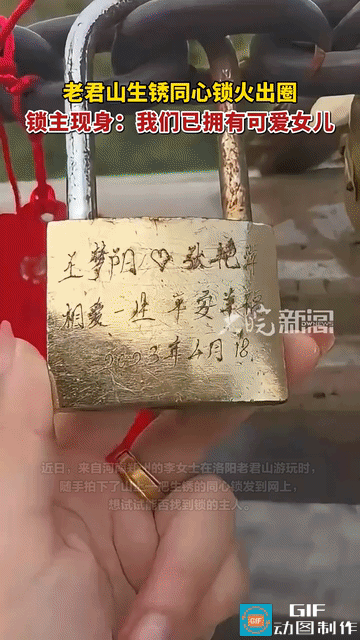 老君山生锈同心锁火出圈
锁主现身：我们已拥有可爱女儿
王梦阳♡张艳萍
相爱一生
2023年4月18
大皖新闻
近日，来自河南郑州的李女士在洛阳老君山游玩时，
随手拍下了山上一把生锈的同心锁发到网上，
想试试能否找到锁的主人。
GIF
GIF
动图制作